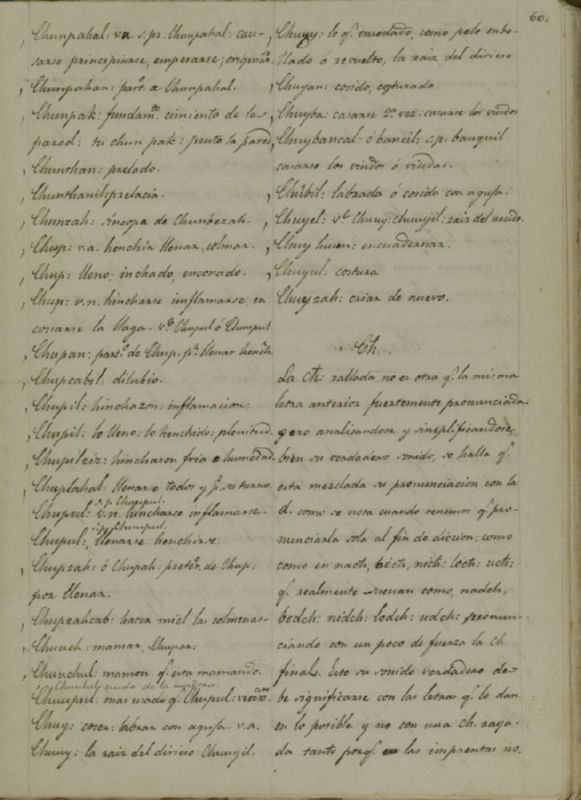 60.
Chunpahal: v.n. s. pr. Chunpahal: cau-
sarse principiarse, empesarse; originarse
Chunpahan: part. de Chunpahal.
Chunpak: fundamto. cimiento de la
pared: tu chun pak: junto la pared
Chunthan: prelado.
Chunthanil: prelacia.
Chunzah: sincopa de Chunbezah.
Chup: v.a. henchir llenar, colmar.
Chup: lleno; inchado, enconado.
Chup: v.n. hincharse inflamarse, en
conarse la llaga. ve. Chuput ó Chuupul
Chupan: parto. de Chup. pa. llenar henchr.
Chupcabil. dilubio.
Chupil: hinchazon: inflamacion:
Chupil: lo lleno: lo henchido: plenitud.
Chupilziz: hincharon fria de humedad
Chuplahal: llenarse todos y pr. su turno.
s. p. Chuupul.
Chupul: v.n. hincharse inflamarse.
s. p. Chuupul.
Chupul: llenarse. henchirse.
Chupzah: ó Chupah: pretto. de Chup:
por llenar.
Chupzahcab: hacer miel las colmenas.
Chuuch: mamar, Chupar:
Chuuchul: mamon q. esta mamando.
Chuuchul, nudo de la madera.
Chuupul: mas usado q. Chupul:
Chuy: coser: labrar con aguja. v.a.
Chuuy: la raiz del divieso: Chuuyil:
Chuuy: lo q. enredado, como pelo enbo-
llado ó revuelto, la raiz del divieso
Chuyan: cosido, costurado.
Chuyba: casarse 2a. vez: casarse los viudos
Chuybancal: ó bancil: s.p. banquil
casarse los viudos ó viudas.
Chuybil: labrada ó cosida con aguja.
Chuyel: ve. Chuuy: Chuuyil: raiz del nacido.
Chuy huun: encuadernar.
Chuyul: costura
Chuyzah: criar de nuevo.
Ch.
La Ch. rallada no es otra q. la misma
letra anterior fuertemente pronunciada:
pero analisandose y simplificandose
bien su verdadero sonido, se halla q.
esta mezclada su pronunciacion con la
d. como se nota cuando tenemos q. pro-
nunciarla sola al fin de diccion; como
como en nach, bech, nich: loch: uch:
q. realmente suenan como, nadch,
bedch: nidch: lodch: udch: pronun-
ciando con un poco de fuerza la ch
final. Este su sonido verdadero de-
be significarse con las letras q. lo dan
en lo posible y no con una ch. raya-
da tanto porq. en las imprentas no.